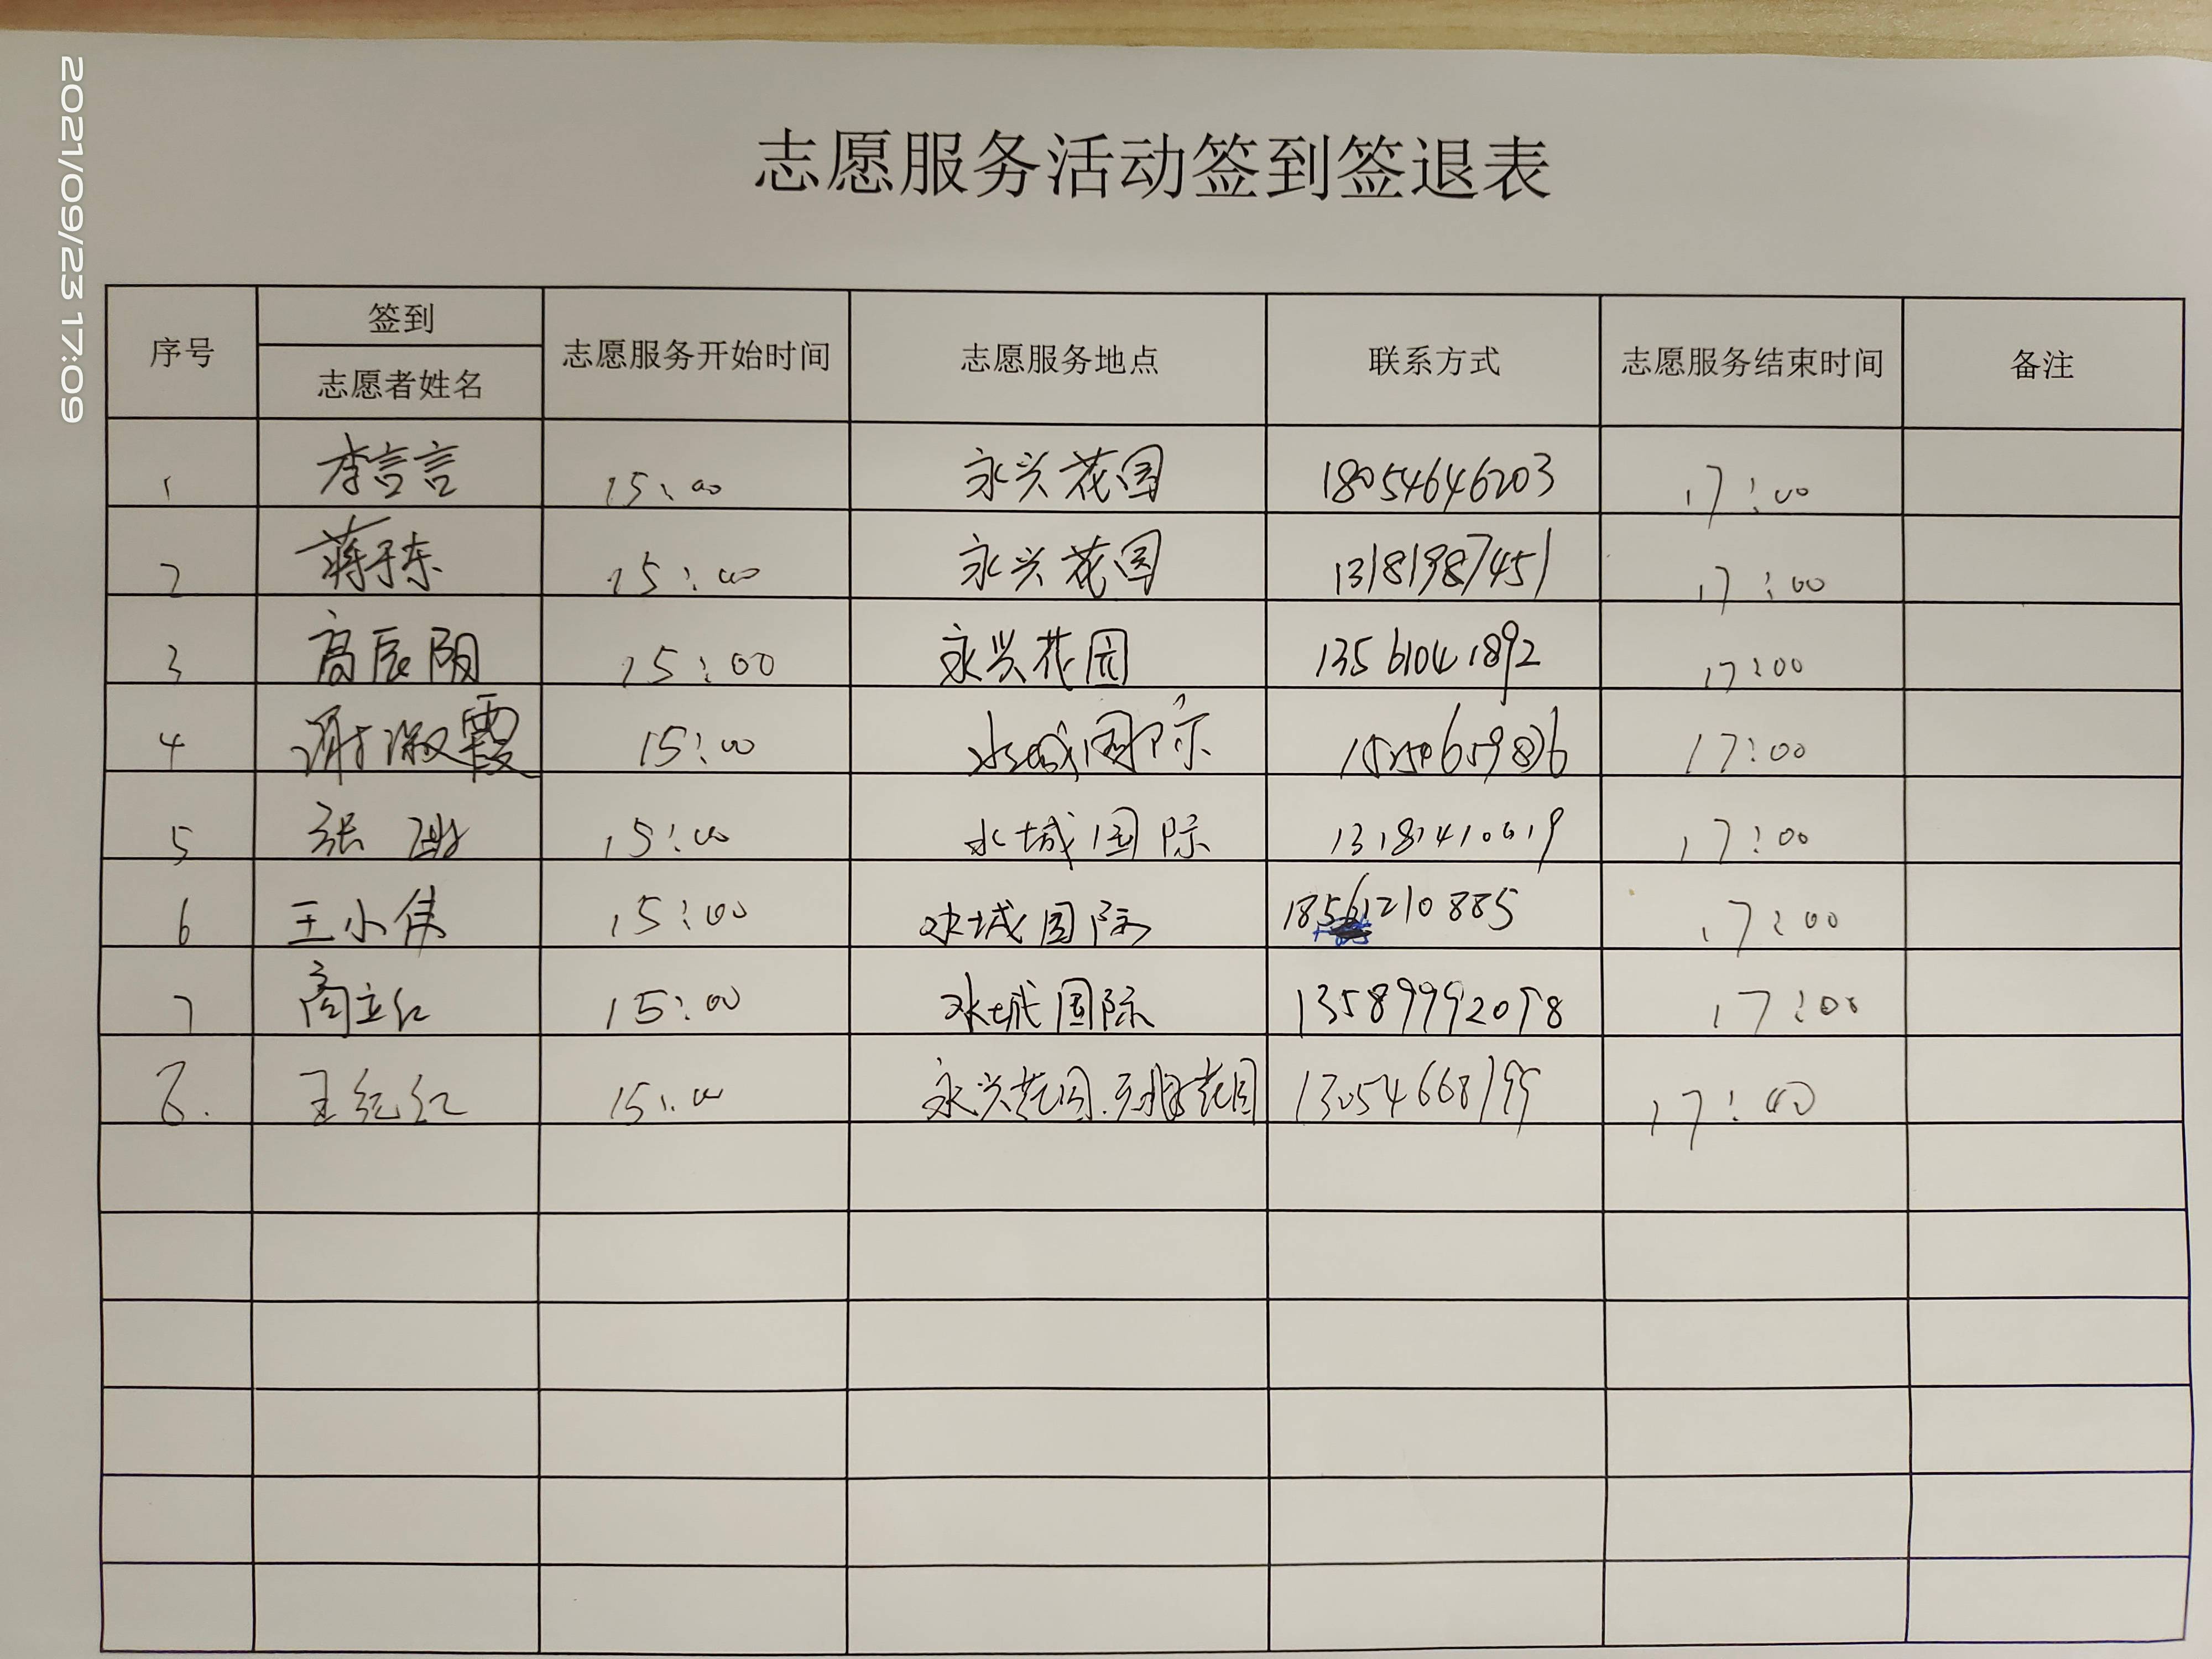 2021/09/23 17:09
志愿服务活动签到签退表
序号 签到 志愿者姓名 志愿服务开始时间 志愿服务地点 联系方式 志愿服务结束时间 备注
1 李言言 15:00 永兴花园 18054646203 17:00
2 蒋于东 15:00 永兴花园 13181987451 17:00
3 高辰阳 15:00 永兴花园 13561041892 17:00
4 谢淑霞 15:00 水城国际 17:00
5 张 15:00 水城国际 13181410019 17:00
6 王小伟 15:00 水城国际 18561210885 17:00
7 商立红 15:00 水城国际 13589992098 17:00
8. 王纪红 15:00 永兴花园. 花园 13054668799 17:00